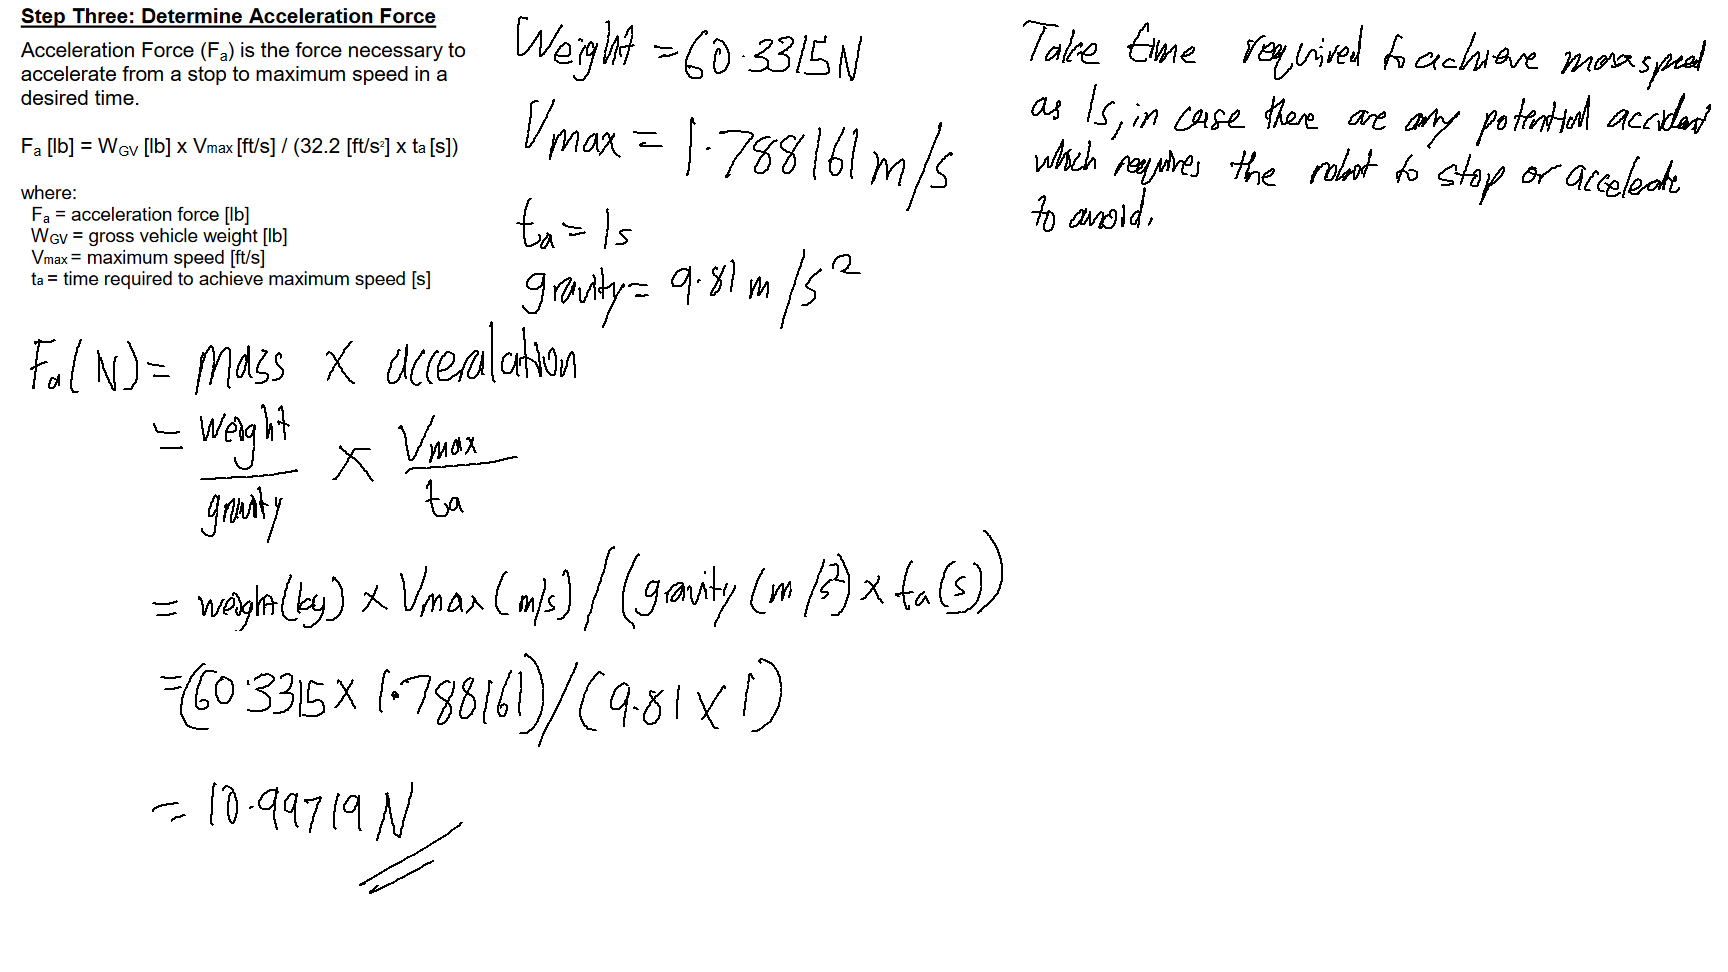 Step Three: Determine Acceleration Force
Acceleration Force (Fa) is the force necessary to
accelerate from a stop to maximum speed in a
desired time.
Fa [lb] = WGV [lb] x Vmax [ft/s] / (32.2 [ft/s²] x ta [s])
where:
Fa = acceleration force [lb]
WGV = gross vehicle weight [lb]
Vmax = maximum speed [ft/s]
ta = time required to achieve maximum speed [s]
Weight = 60.3315N
Vmax = 1.788161 m/s
ta = 1s
gravity = 9.81 m/s²
Take time required to achieve max speed
as 1s, in case there are any potential accident
which requires the robot to stop or accelerate
to avoid.
Fa(N) = mass x acceralation
= weight / gravity x Vmax / ta
= weight(kg) x Vmax (m/s) / (gravity (m/s²) x ta(s))
= (60.3315 x 1.788161) / (9.81 x 1)
= 10.99719 N